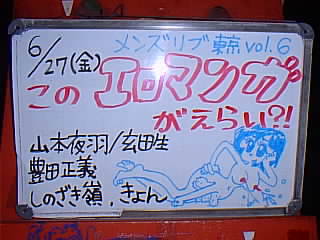 メンズリブ東京 vol.6
6/27(金)
この エロマンガ
がえらい?!
山本夜羽/玄田生
豊田正義
しのざき嶺,きょん